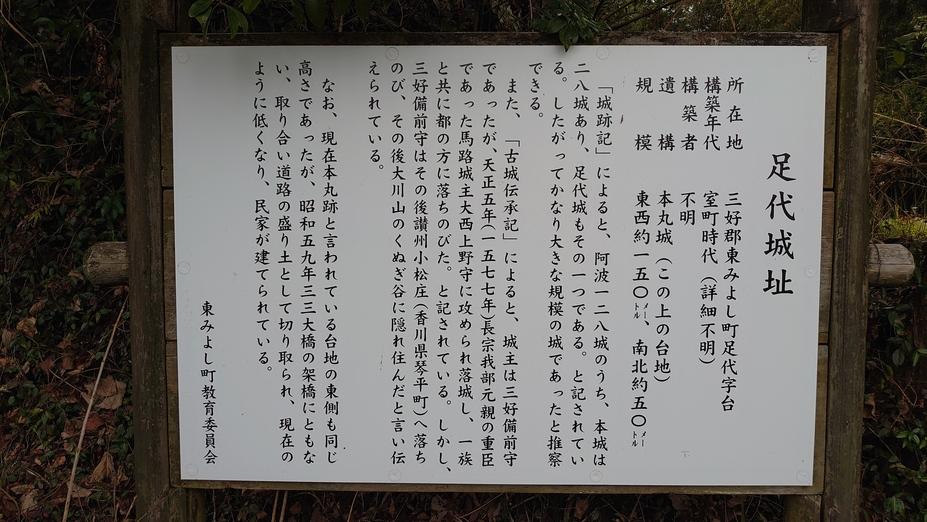 足代城址
所在地　三好郡東みよし町足代字台
構築年代　室町時代（詳細不明）
構築者　不明
遺構　本丸城（この上の台地）
規模　東西約一五〇メートル、南北約五〇メートル
「城跡記」によると、阿波一二八城のうち、本城は
二八城あり、足代城もその一つである。と記されてい
る。したがってかなり大きな規模の城であったと推察
できる。
また、「古城伝承記」によると、城主は三好備前守
であったが、天正五年（一五七七年）長宗我部元親の重臣
であった馬路城主大西上野守に攻められ落城し、一族
と共に都の方に落ちのびた。と記されている。しかし、
三好備前守はその後讃州小松庄（香川県琴平町）へ落ち
のび、その後大川山のくぬぎ谷に隠れ住んだと言い伝
えられている。
なお、現在本丸跡と言われている台地の東側も同じ
高さであったが、昭和五九年三三大橋の架橋にともな
い、取り合い道路の盛り土として切り取られ、現在の
ように低くなり、民家が建てられている。
東みよし町教育委員会